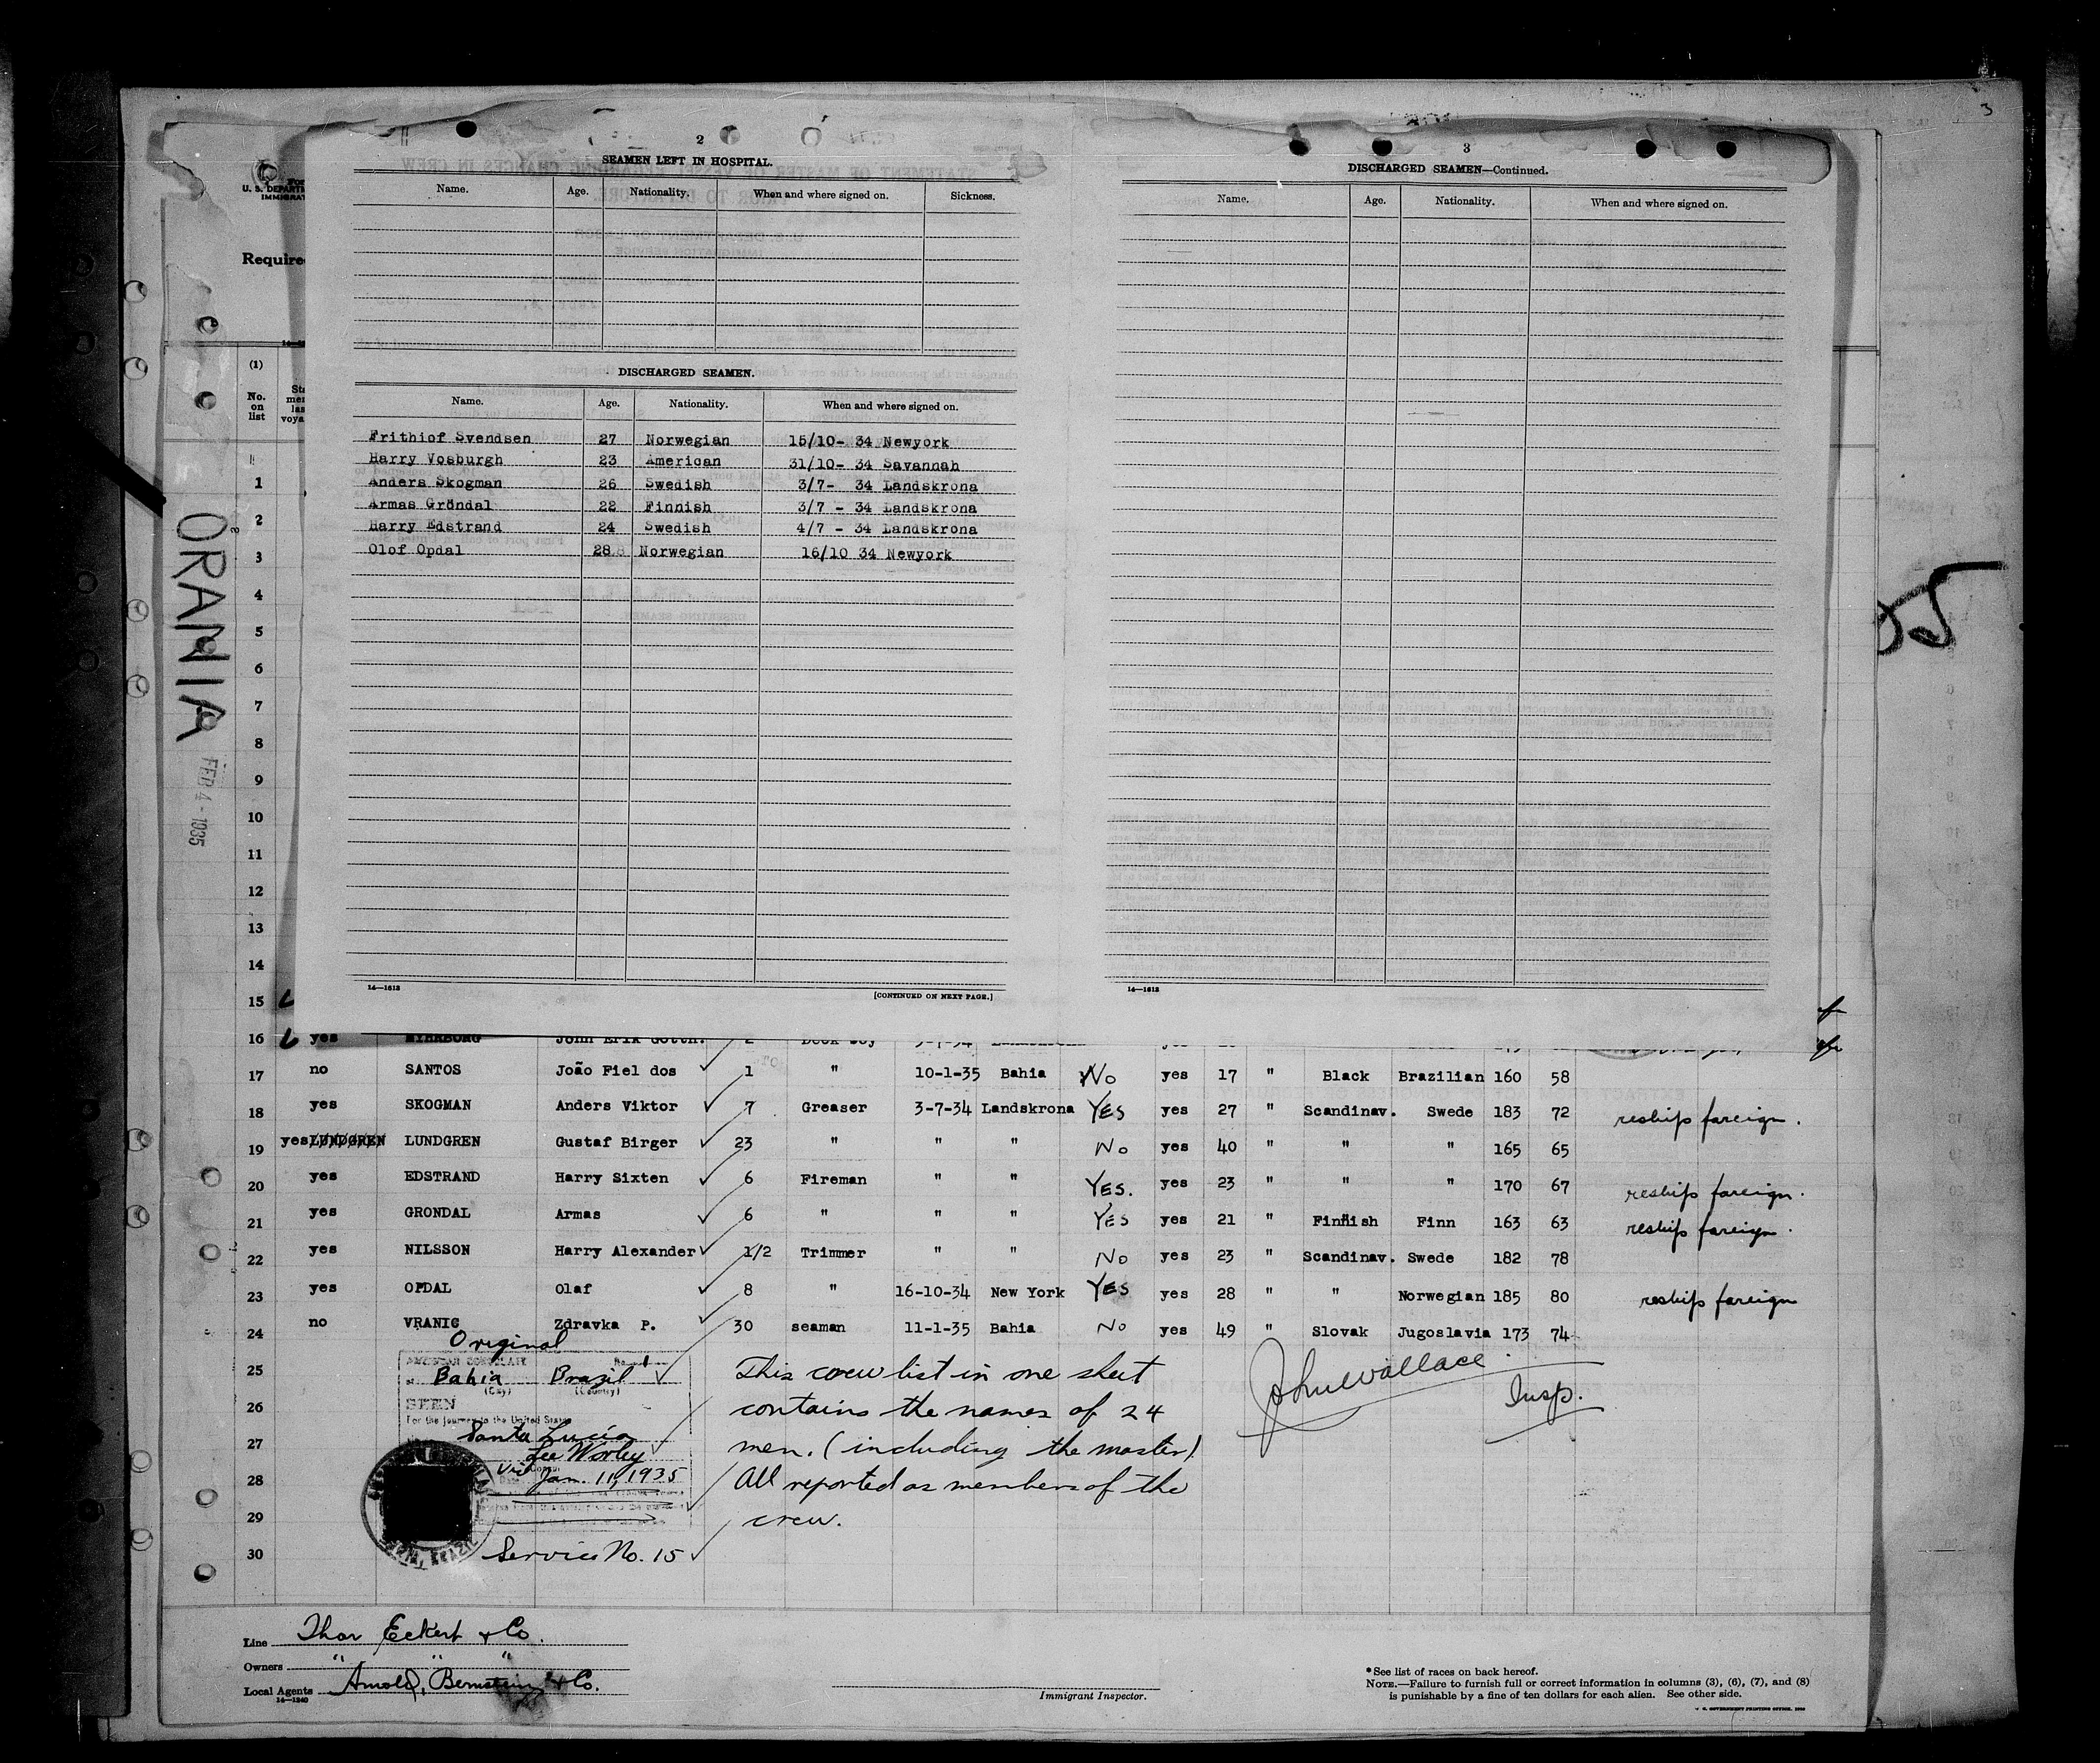 3
2
SEAMEN LEFT IN HOSPITAL.
Name. Age. Nationality. When and where signed on. Sickness.
DISCHARGED SEAMEN.
Name. Age. Nationality. When and where signed on.
Frithiof Svendsen 27 Norwegian 15/10- 34 Newyork
Harry Vosburgh 23 American 31/10- 34 Savannah
Anders Skogman 26 Swedish 3/7- 34 Landskrona
Armas Gröndal 22 Finnish 3/7 - 34 Landskrona
Harry Edstrand 24 Swedish 4/7 - 34 Landskrona
Olof Opdal 28 Norwegian 16/10 34 Newyork
14—1613
[CONTINUED ON NEXT PAGE.]
3
DISCHARGED SEAMEN—Continued.
Name. Age. Nationality. When and where signed on.
14—1613
U. S. DEPARTM
IMMIGRAT
Require
(1)
No. on list
ORANIA
FEB 4 - 1935
1
2
3
4
5
6
7
8
9
10
11
12
13
14
15
16 yes MYHRBORG John Erik Gotth.
17 no SANTOS João Fiel dos 1 " 10-1-35 Bahia No yes 17 " Black Brazilian 160 58
18 yes SKOGMAN Anders Viktor 7 Greaser 3-7-34 Landskrona YES yes 27 " Scandinav. Swede 183 72 reships foreign.
19 yes LUNDGREN LUNDGREN Gustaf Birger 23 " " " No yes 40 " " " 165 65
20 yes EDSTRAND Harry Sixten 6 Fireman " " YES. yes 23 " " " 170 67 reships foreign.
21 yes GRONDAL Armas 6 " " " YES yes 21 " Finnish Finn 163 63 reships foreign.
22 yes NILSSON Harry Alexander 1/2 Trimmer " " No yes 23 " Scandinav. Swede 182 78
23 yes OPDAL Olaf 8 " 16-10-34 New York YES yes 28 " " Norwegian 185 80 reships foreign
24 no VRANIG Zdravka P. 30 seaman 11-1-35 Bahia No yes 49 " Slovak Jugoslavia 173 74
25
26
27
28
29
30
Original
AMERICAN CONSULATE No. 1
at Bahia Brazil
(City) (Country)
SEEN
For the journey to the United States
Santa Lucia
Lee Worley
Vice Consul
Jan. 11, 1935
Service No. 15
This crew list in one sheet
contains the names of 24
men. (including the master)
All reported as members of the
crew.
John Wallace
Insp.
Line Thor Eckert & Co.
Owners " " "
Local Agents Arnold, Bernstein & Co.
14—1240
Immigrant Inspector.
*See list of races on back hereof.
NOTE.—Failure to furnish full or correct information in columns (3), (6), (7), and (8)
is punishable by a fine of ten dollars for each alien. See other side.
U. S. GOVERNMENT PRINTING OFFICE